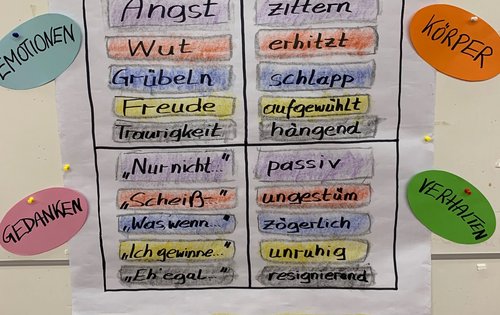 EMOTIONEN
Angst
Wut
Grübeln
Freude
Traurigkeit
KÖRPER
zittern
erhitzt
schlapp
aufgewühlt
hängend
GEDANKEN
„Nur nicht..."
„Scheiß-"
„Was wenn..."
„Ich gewinne..."
„Eh' egal..."
VERHALTEN
passiv
ungestüm
zögerlich
unruhig
resignierend